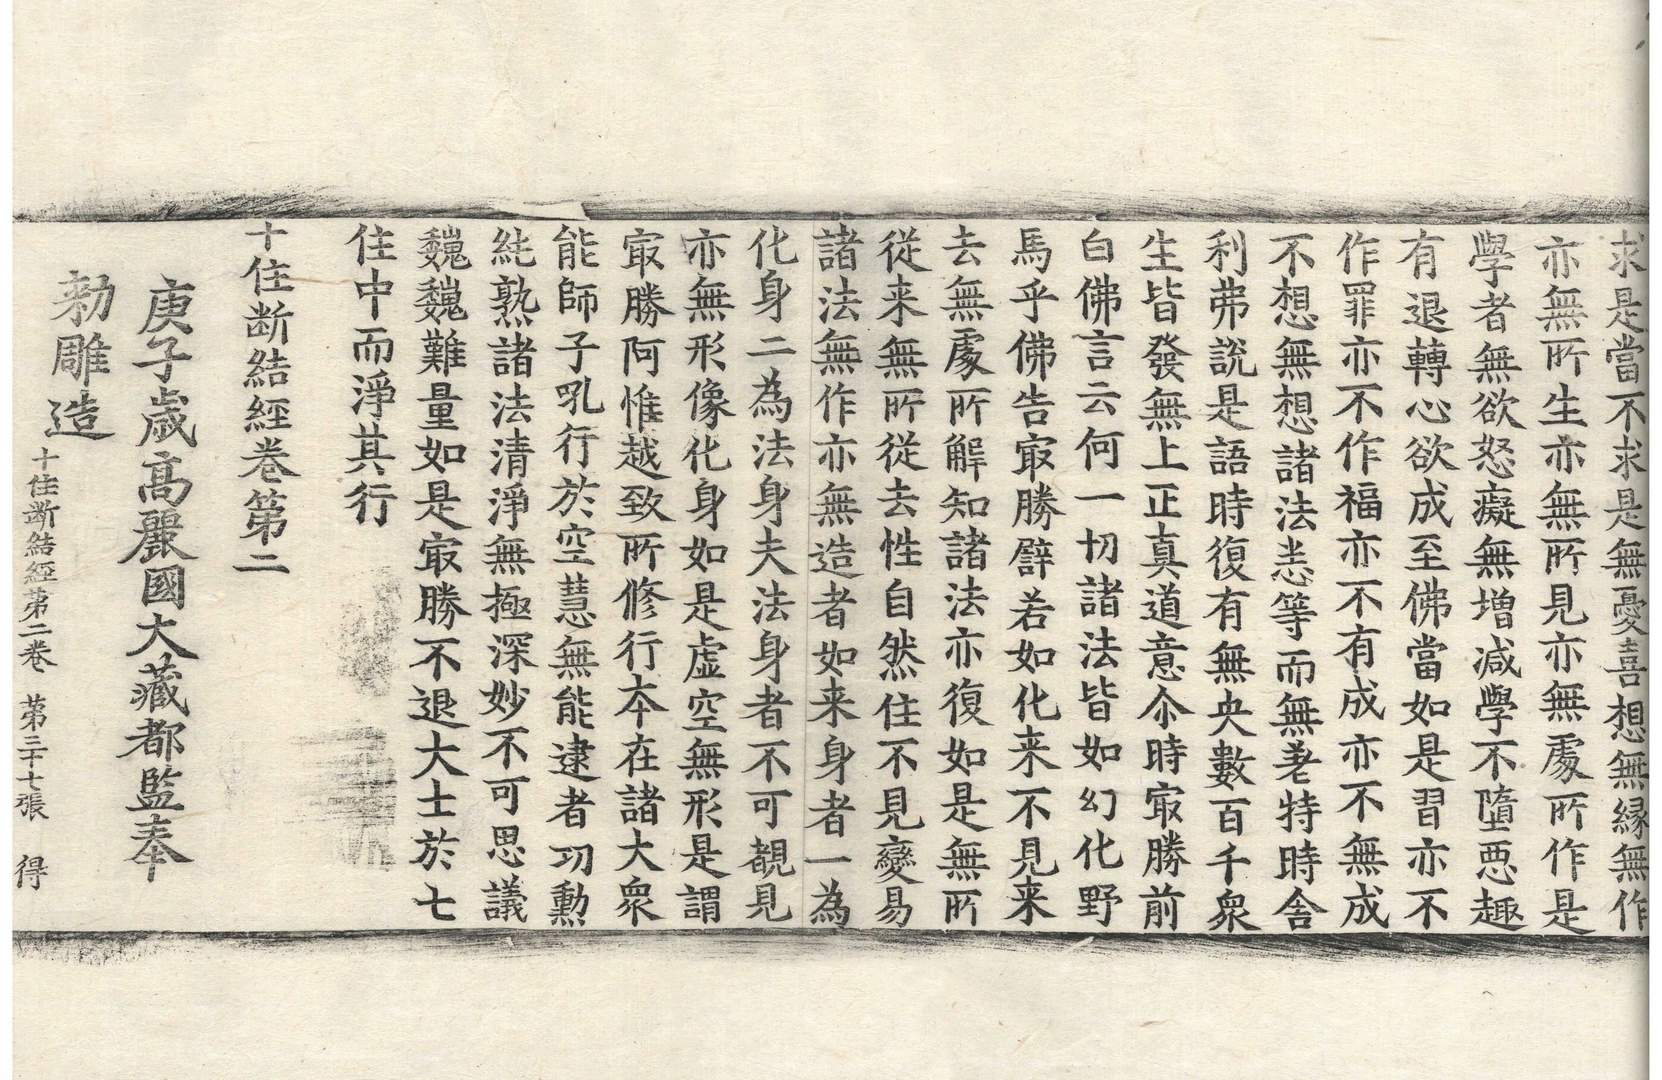 求是當不求是無憂喜想無縁無作
亦無所生亦無所見亦無處所作是
學者無欲怒癡無增减學不墮惡趣
有退轉心欲成至佛當如是習亦不
作罪亦不作福亦不有成亦不無成
不想無想諸法恙等而無差特時舍
利弗說是語時復有無央數百千衆
生皆發無上正真道意尒時㝡勝前
白佛言云何一切諸法皆如幻化野
馬乎佛告㝡勝譬若如化来不見来
去無處所解知諸法亦復如是無所
從来無所從去性自然住不見變易
諸法無作亦無造者如来身者一為
化身二為法身夫法身者不可覩見
亦無形像化身如是虛空無形是謂
㝡勝阿惟越致所修行本在諸大衆
能師子吼行於空慧無能逮者功勲
純熟諸法清淨無極深妙不可思議
巍巍難量如是㝡勝不退大士於七
住中而淨其行
十住断結經卷第二
庚子歲高麗國大藏都監奉
勑雕造
十住断結經第二卷 第三十七張 得